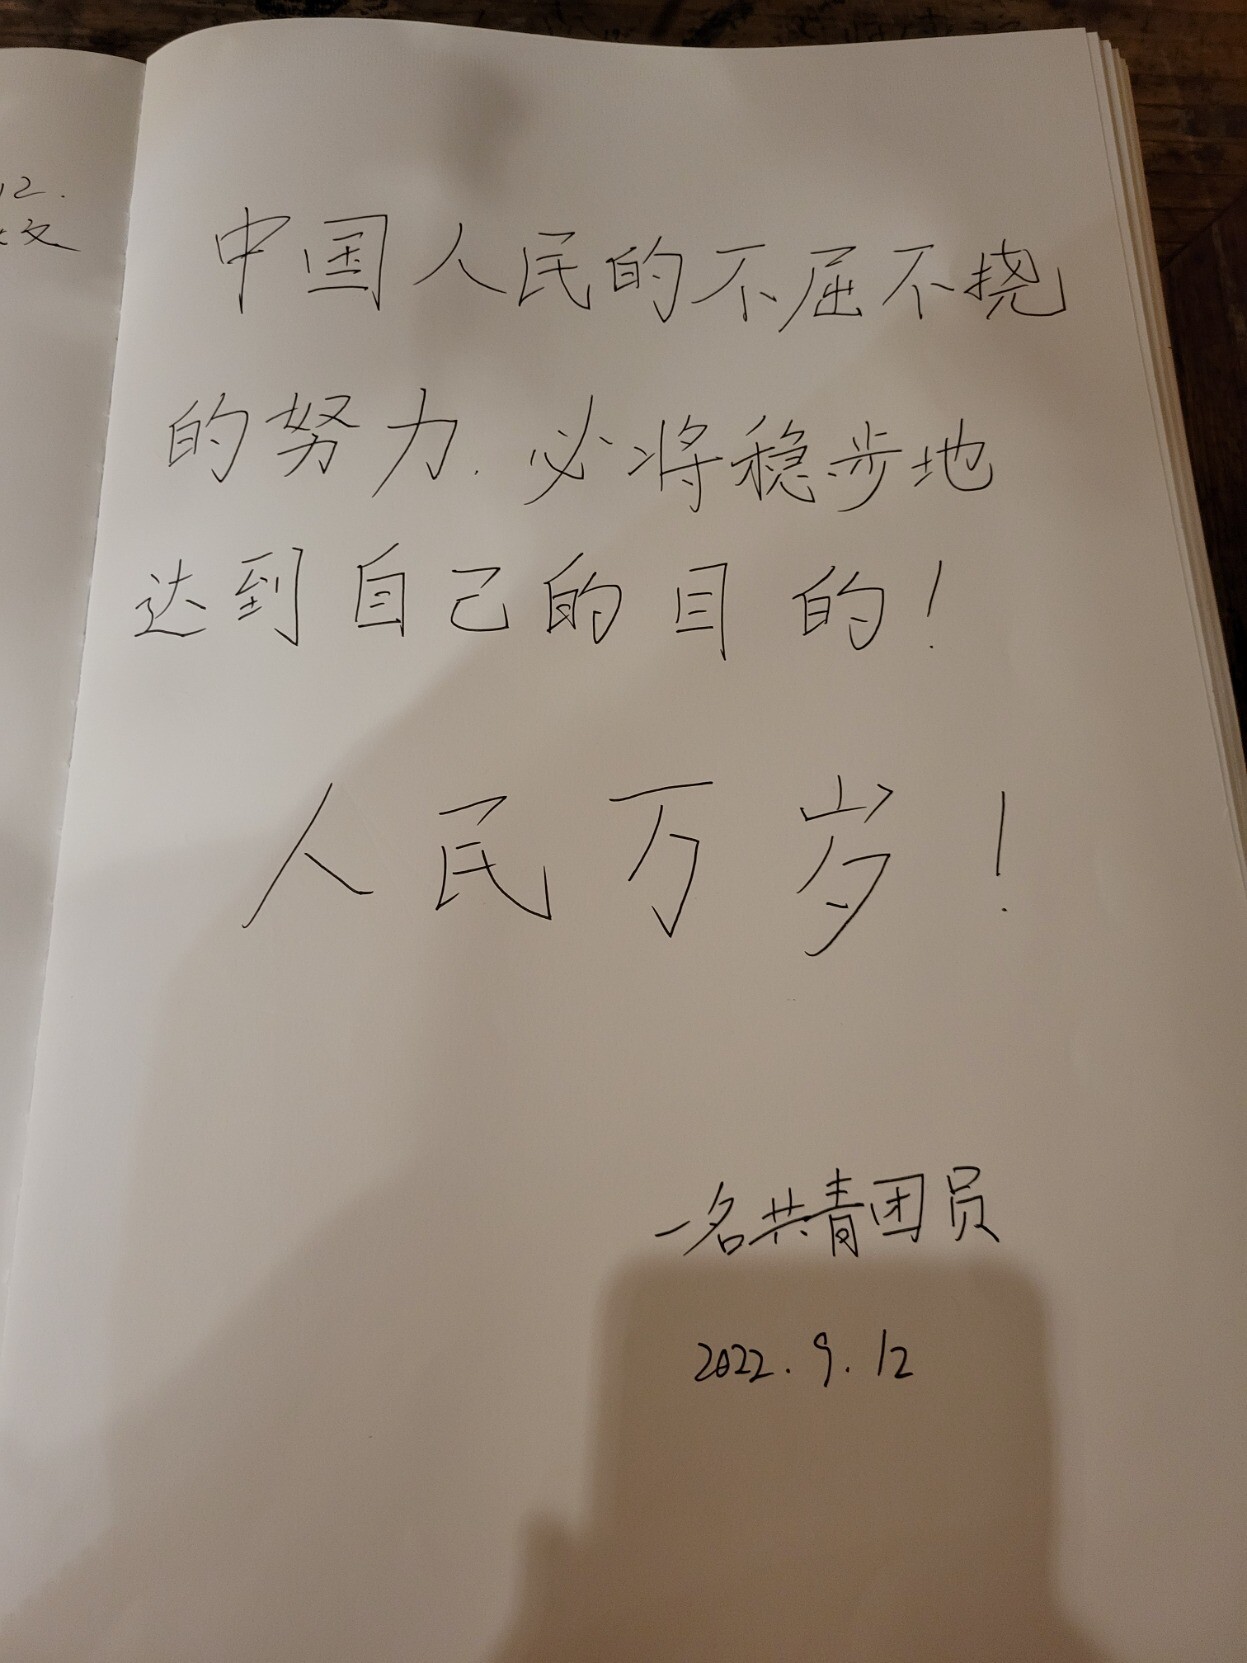 12.
文
中国人民的不屈不挠
的努力.必将稳步地
达到自己的目的!
人民万岁!
一名共青团员
2022.9.12